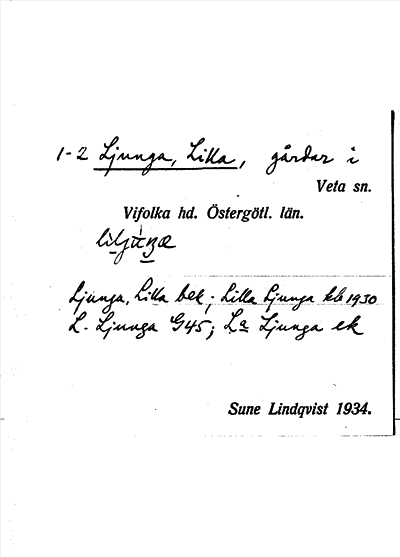 1-2 Ljunga, Lilla, gårdar i
Veta sn.
Vifolka hd. Östergötl. län.
Ljunga, Lilla bek; Lilla Ljunga kb 1930
L. Ljunga G45; La Ljunga ek
Sune Lindqvist 1934.